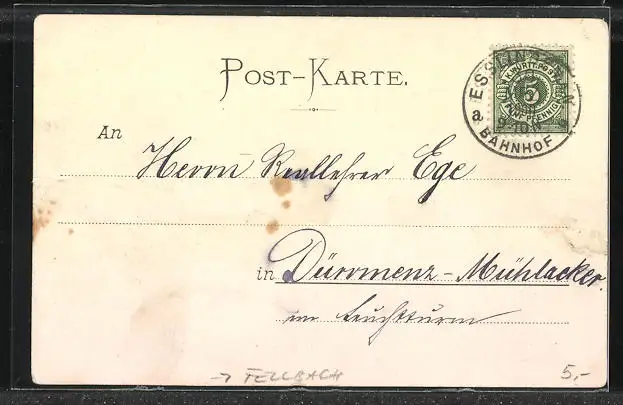 POST-KARTE.
ESSLINGEN
K. WÜRTT. POST
5
FÜNF PFENNIG
BAHNHOF
An
Herrn Reallehrer Ege
in Dürrmenz-Mühlacker.
im Leuchtturm
→ FELLBACH
5,-